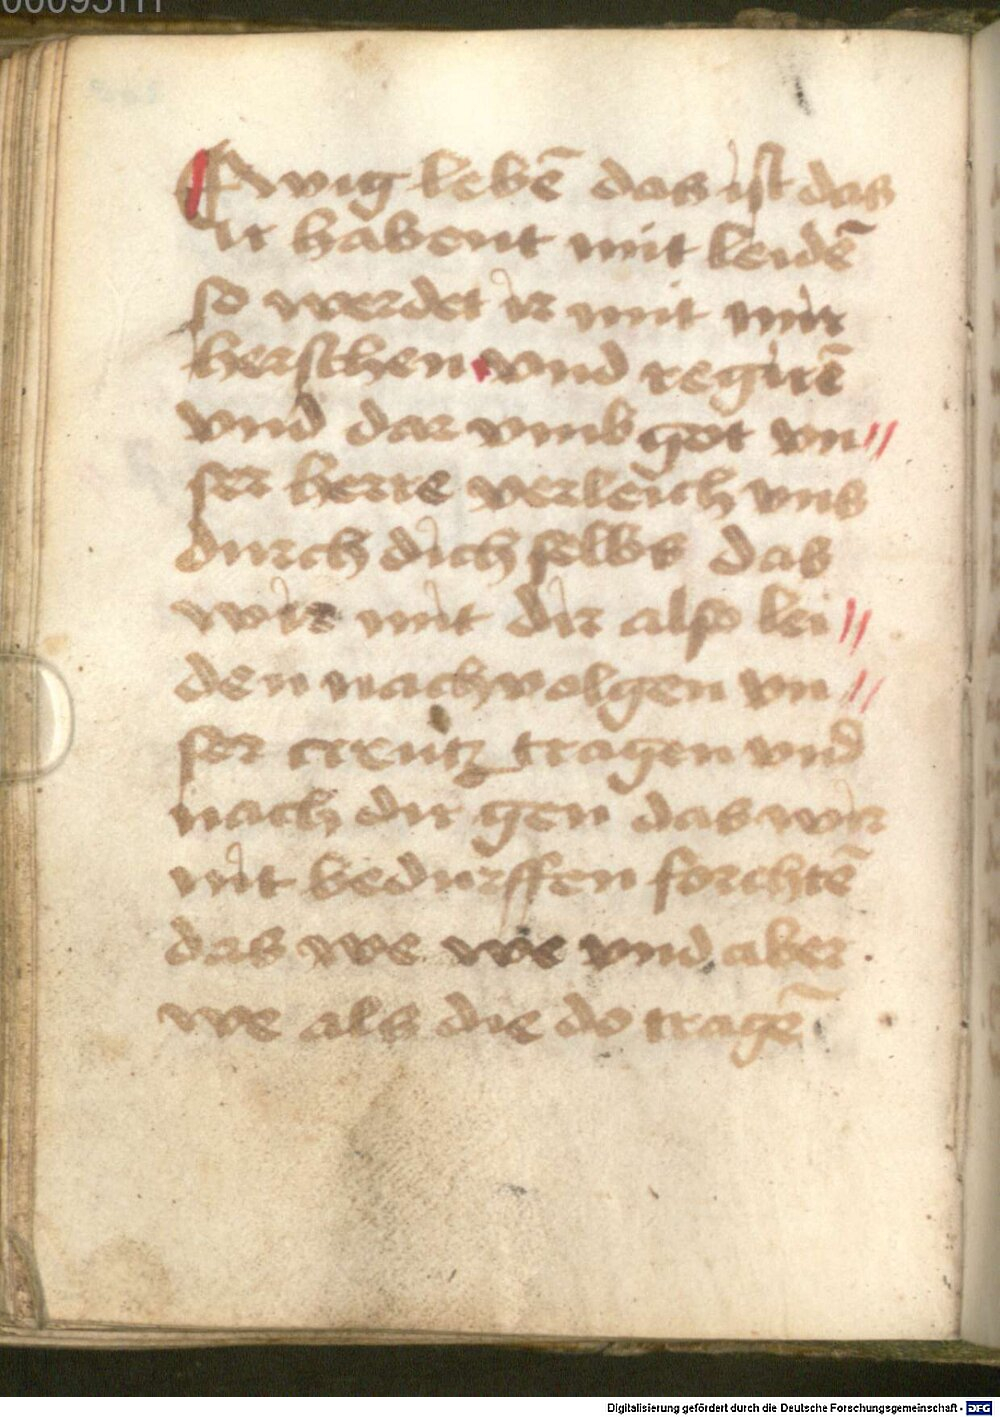 Ewig lebē das ist das
ir habent mit leidē
so werdet ir mit mir
herschen vnd regirē
vnd dar vmb got vn〃
ser herre verleich vns
durch dich selbs das
wir mit dir also lei〃
den nachvolgen vn〃
ser crewtz tragen vnd
nach dir gen das wir
nit bedurffen forchtē
das we we vnd aber
we als die do tragē
Digitalisierung gefördert durch die Deutsche Forschungsgemeinschaft - DFG